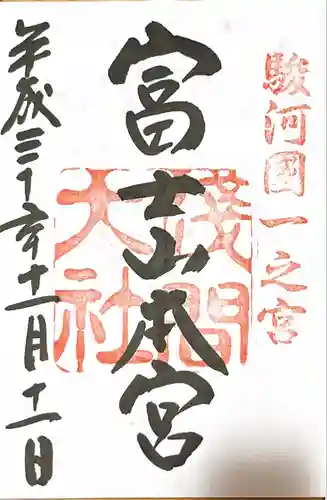 駿河國一之宮
富士山本宮
浅間大社
平成三十年十一月十一日